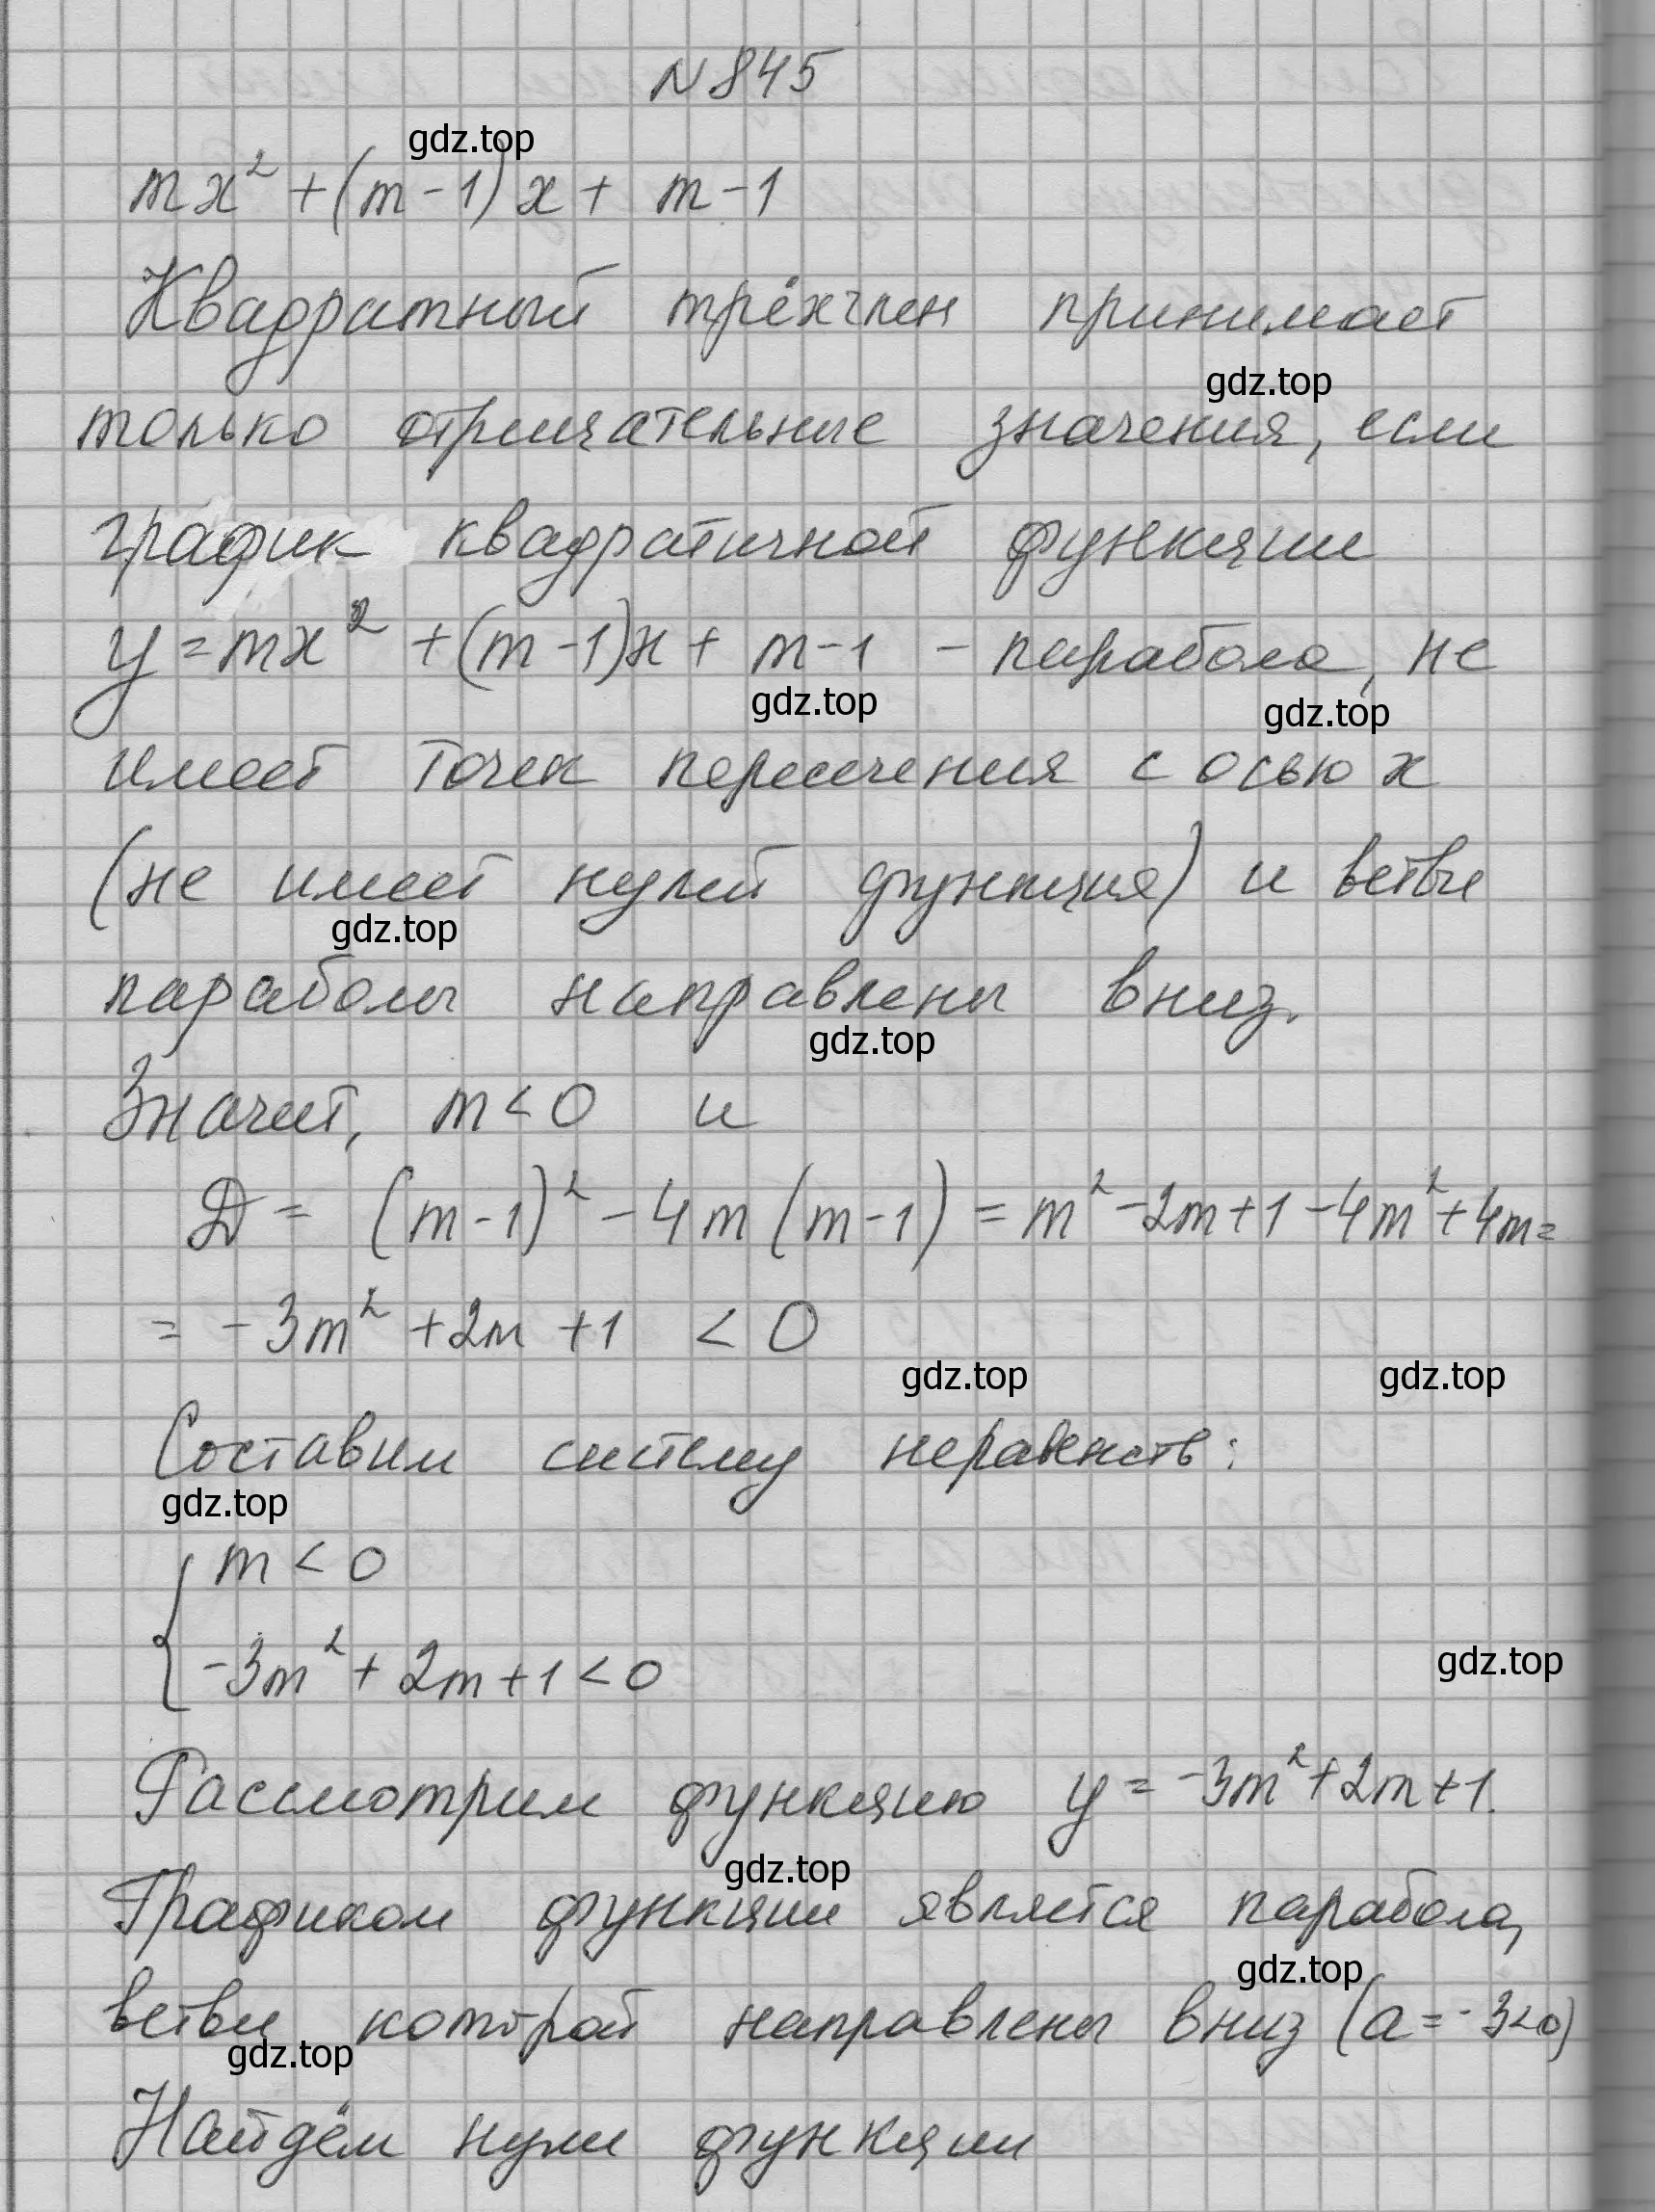 № 845
gdz.top
mx² + (m-1)x + m-1
Квадратный трёхчлен принимает
gdz.top
только отрицательные значения, если
график квадратичной функции
y = mx² + (m-1)x + m-1 - парабола, не
gdz.top gdz.top
имеет точек пересечения с осью x
(не имеет нулей функция) и ветви
gdz.top
параболы направлены вниз.
gdz.top
Значит, m<0 и
D = (m-1)² - 4m(m-1) = m² - 2m + 1 - 4m² + 4m =
= -3m² + 2m + 1 < 0
gdz.top gdz.top
Составим систему неравенств:
gdz.top
{ m < 0
-3m² + 2m + 1 < 0
gdz.top
Рассмотрим функцию y = -3m² + 2m + 1.
gdz.top
Графиком функции является парабола,
gdz.top
ветви которой направлены вниз (a = -3<0)
gdz.top
Найдём нули функции